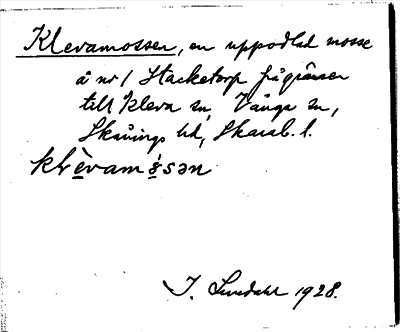 Klevamossen, en uppodlad mosse
å nr 1 Stacketorp på gränsen
till Kleva sn, Vånga sn,
Skånings hd, Skarab. l.
klèvamòsən
J. Sundahl 1928.